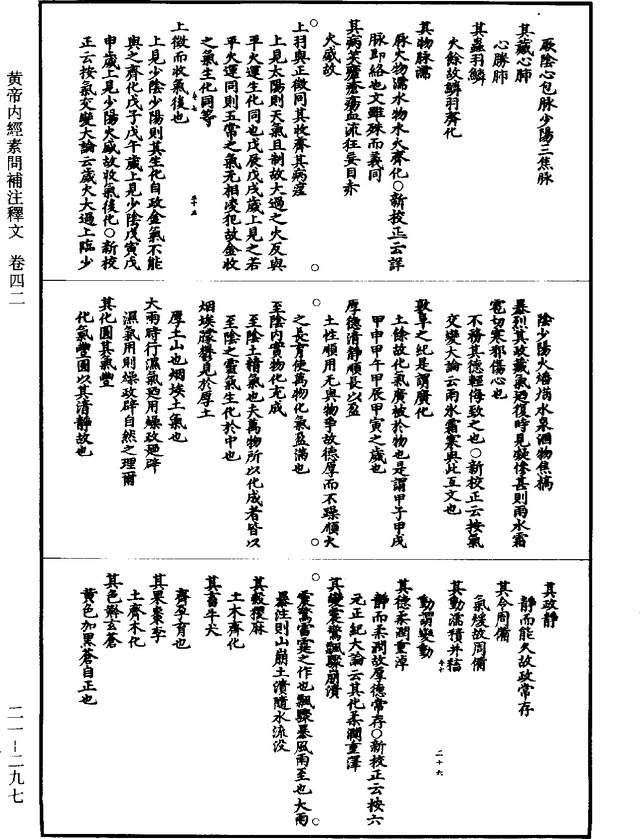 黄帝内經素問補注釋文 卷四二
二一–二九七
厥陰心包脉少陽三焦脉
其藏心肺
心勝肺
其蟲羽鱗
火餘故鱗羽齊化
其物脉濡
脉火物濡水物水火齊化○新校正云詳
脉即絡也文雖殊而義同
其病笑瘧瘡瘍血流狂妄目赤
火盛故
上羽與正徵同其收齊其病痓
上見太陽則天氣且制故太過之火反與
平火運生化同也戊辰戊戌歲上見之若
平火運同則五常之氣無相凌犯故金收
之氣生化同等
上徵而收氣後也
上見少陰少陽則其生化自政金氣不能
與之齊化戊子戊午歲上見少陰戊寅戊
申歲上見少陽火盛故收氣後化○新校
正云按氣交變大論云歲火太過上臨少
陰少陽火燔焫水泉涸物焦槁
暴烈其政藏氣迺復時見凝慘甚則雨水霜
雹切寒邪傷心也
不務其德輕侮致之也○新校正云按氣
交變大論云雨氷霜寒與此互文也
敦阜之紀是謂廣化
土餘故化氣廣被於物也是謂甲子甲戌
甲申甲午甲辰甲寅之歲也
厚德清靜順長以盈
土性順用無與物爭故德厚而不躁順火
之長育使萬物化氣盈滿也
至陰内實物化充成
至陰土精氣也夫萬物所以化成者皆以
至陰之靈氣生化於中也
烟埃朦鬱見於厚土
厚土山也烟埃土氣也
大雨時行濕氣迺用燥政迺辟
濕氣用則燥政辟自然之理爾
其化圓其氣豐
化氣豐圓以其清靜故也
其政靜
靜而能久故政常存
其令周備
氣緩故周備
其動濡積并稸
動謂變動
其德柔潤重淖
靜而柔潤故厚德常存○新校正云按六
元正紀大論云其化柔潤重澤
其變震驚飄驟崩潰
震驚雷霆之作也飄驟暴風雨至也大雨
暴注則山崩土潰隨水流没
其穀稷麻
土木齊化
其畜牛犬
齊孕育也
其果棗李
土齊木化
其色黅玄蒼
黄色加黑蒼自正也